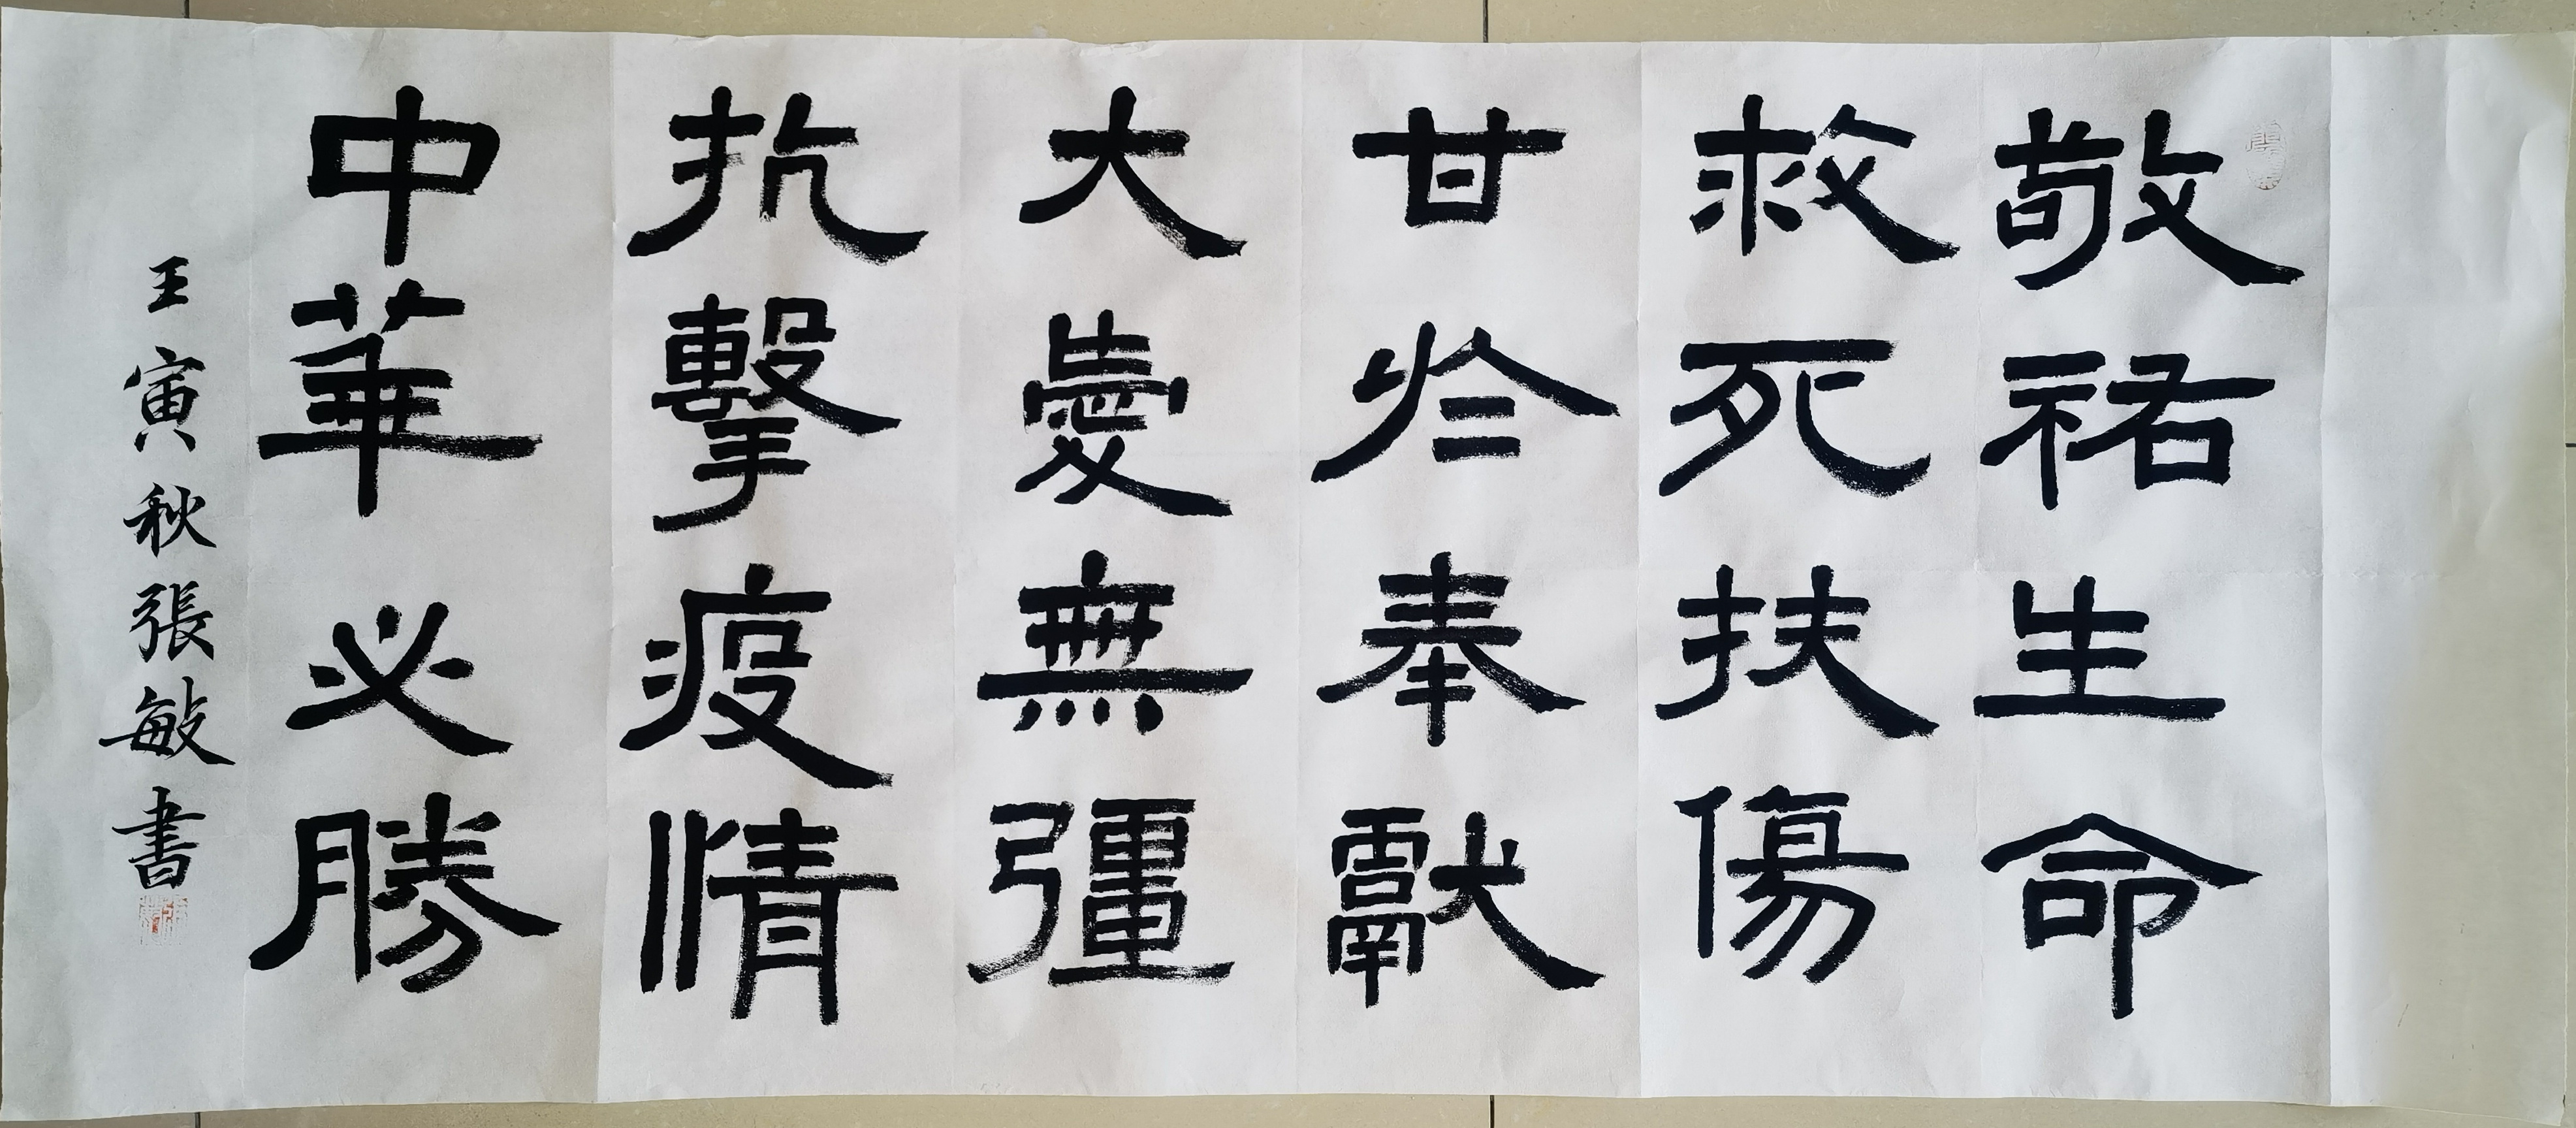 敬祐生命
救死扶傷
甘於奉獻
大愛無彊
抗擊疫情
中華必勝
壬寅秋張敏書